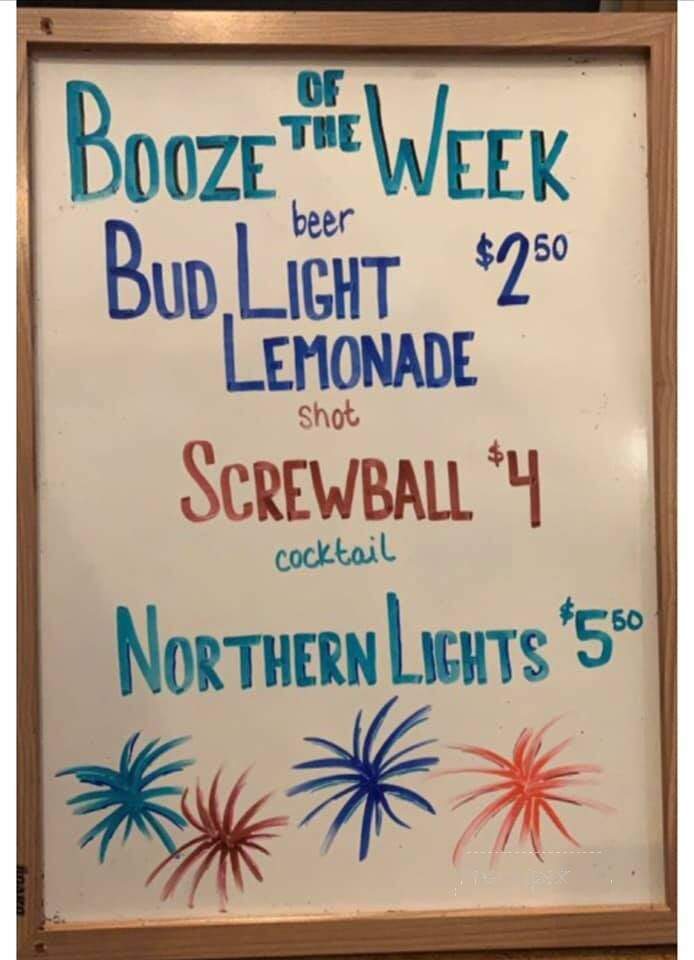 BOOZE OF THE WEEK
beer
BUD LIGHT $2.50
LEMONADE
shot
SCREWBALL $4
cocktail
NORTHERN LIGHTS $5.50